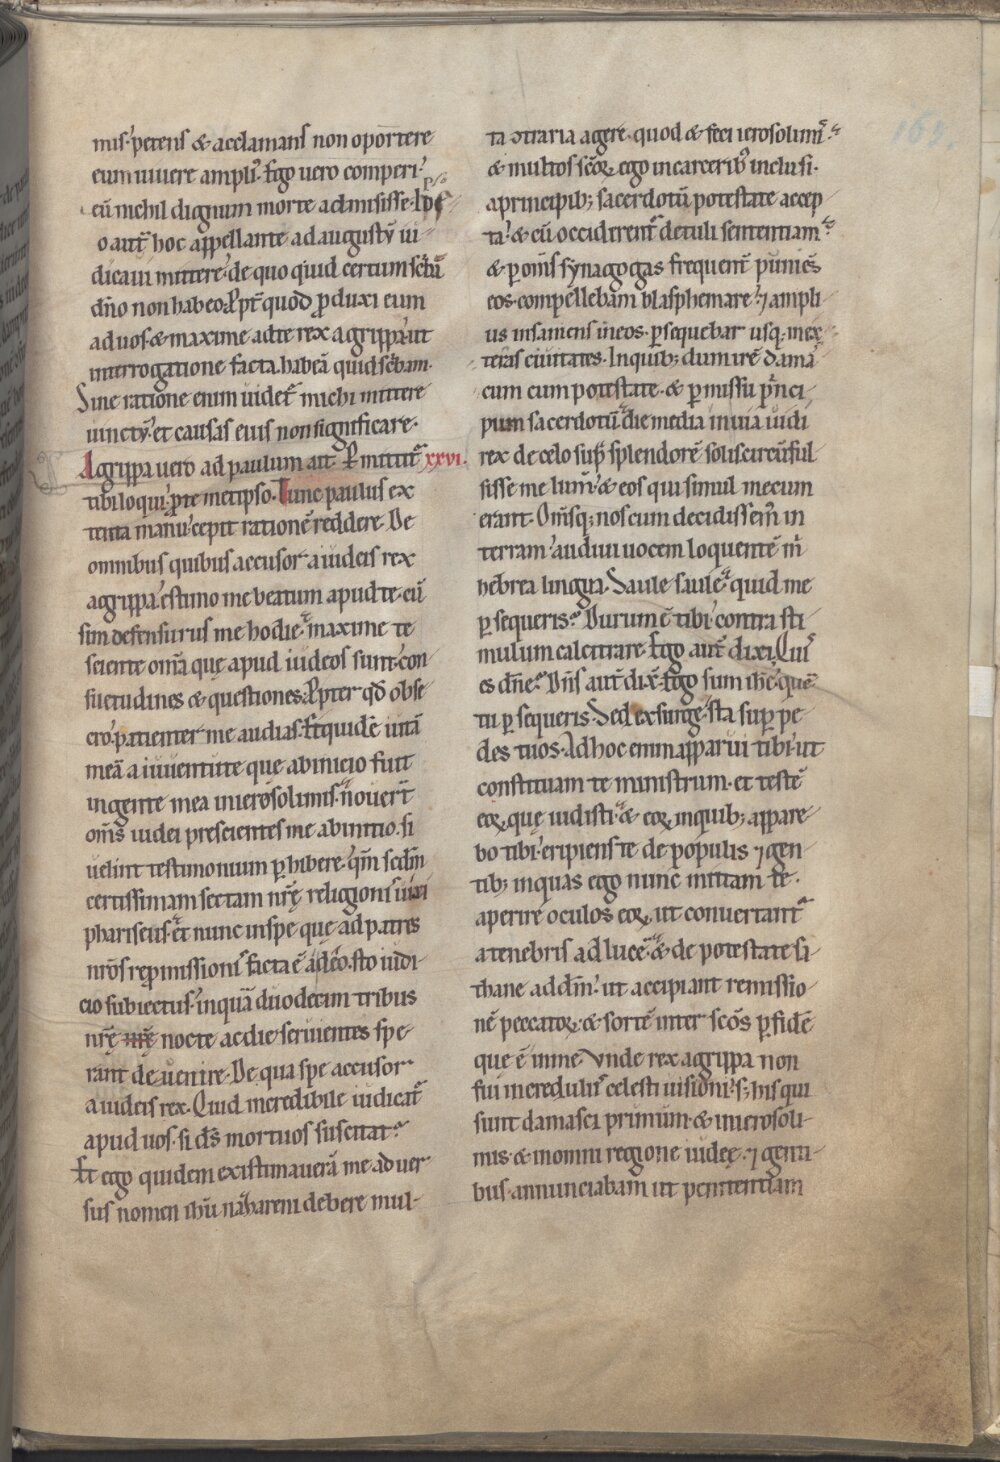 mis petens & acclamans non oportere
eum uiuere ampli᷒. Ego uero comperi
cū nichil dignum morte admisisse. Ipſ
o aut̄ hoc appellante ad augustū iu-
dicaui mittere. de quo quid certum scͥbā
dn̄o non habeo. Ꝓpt̄ quod ꝓduxi eum
ad uos. & maxime ad te rex agrippa. ut
interrogatione facta habeā quid scͥbam.
Sine ratione enim uidet᷑ michi mittere
uinctū. et causas eius non significare.
Agrippa uero ad paulum ait. Ꝑmittit᷑ xxvi.
tibi loqui ꝓ te metipso. Tunc paulus ex
tenta manu cepit rationē reddere. De
omnibus quibus accusor a iudeis rex
agrippa estimo me beatum apud te. cū
sim defensurus me hodie. maxime te
sciente om̄a quę apud iudeos sunt. con
suetudines & questiones. Ꝓpter qd̄ obse
cro. patienter me audias. Et quidē uitā
meā a iuuentute que ab inicio fuit
in gente mea in ierosolimis. nouer̄t
om̄s iudei prescientes me ab initio. si
uelint testimonium ꝑhibere. qm̄ scdm̄
certissimam sectam nr̄ę religionis uixi
phariseus. Et nunc in spe que ad patres
nr̄os repmissionis facta ē a deo. sto iudi-
cio subiectus. in quā duodecim tribus
nr̄ę nr̄ę nocte ac die seruientes spe-
rant deuenire. De qua spe accusor
a iudeis rex. Quid incredibile iudicat᷑
apud uos. si ds̄ mortuos suscitat?
Et ego quidem existimauerā me aduer
sus nomen ih̄u nazareni debere mul-
ta ɔtraria agere. quod & feci ierosolimis.
& multos scōꝝ ego in carcerib᷒ inclusi.
a principib; sacerdotū potestate accep
ta. & cū occidirent᷑ detuli sententiam.
& ꝑ om̄s synagogas frequent̄ puniēs
eos. compellebam blasphemare. ⁊ ampli
us insaniens in eos. ꝑsequebar usq; in ex
teras ciuitates. In quib; dum irē dama
cum cum potestate. & ꝑmissu pͥnci
pum sacerdotū. die media in uia uidi
rex de celo suꝑ splendorē solis circūful
sisse me lum̄. & eos qui simul mecum
erant. Om̄sq; nos cum decidissem᷒ in
terram audiui uocem loquentē m̄
hebrea lingua. Saule saule. quid me
ꝑsequeris? Durum ē tibi contra sti
mulum calcitrare. Ego aut̄ dixi. Quis
es dn̄e? Dn̄s aut̄ dix̄. Ego sum ih̄c quē
tu ꝑsequeris. Sed exsurge. sta suꝑ pe
des tuos. Ad hoc enim apparui tibi. ut
constituam te ministrum. et testē
eoꝝ quę uidisti. & eoꝝ in quib; appare-
bo tibi. eripiens te de populis ⁊ gen
tib; in quas ego nunc mittam te.
aperire oculos eoꝝ. ut conuertant᷑
a tenebris ad lucē. & de potestate sa
thane ad dm̄. ut accipiant remissio
nē peccatoꝝ. & sortē inter scōs ꝑ fidē
que ē in me. Vnde rex agrippa non
fui incredul᷒ celesti uisioni. s; his qui
sunt damasci primum. & in ierosoli-
mis. & in omni regione iudeę. ⁊ genti
bus. annunciabam ut penitentiam